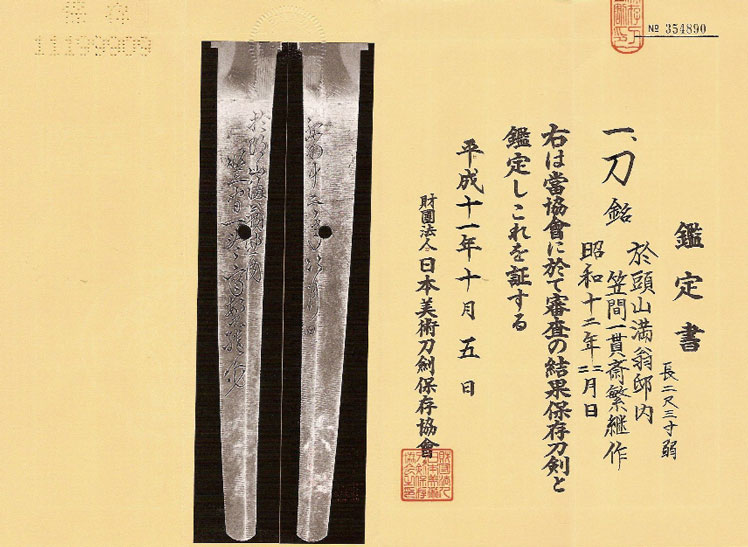 № 354890
鑑定書
一、刀 銘
於頭山満翁邸内
笠間一貫斎繁継作
昭和十二年二月日
長二尺三寸弱
右は當協會に於て審査の結果保存刀剣と
鑑定しこれを証する
平成十一年十月五日
財團法人日本美術刀剣保存協會
11199909